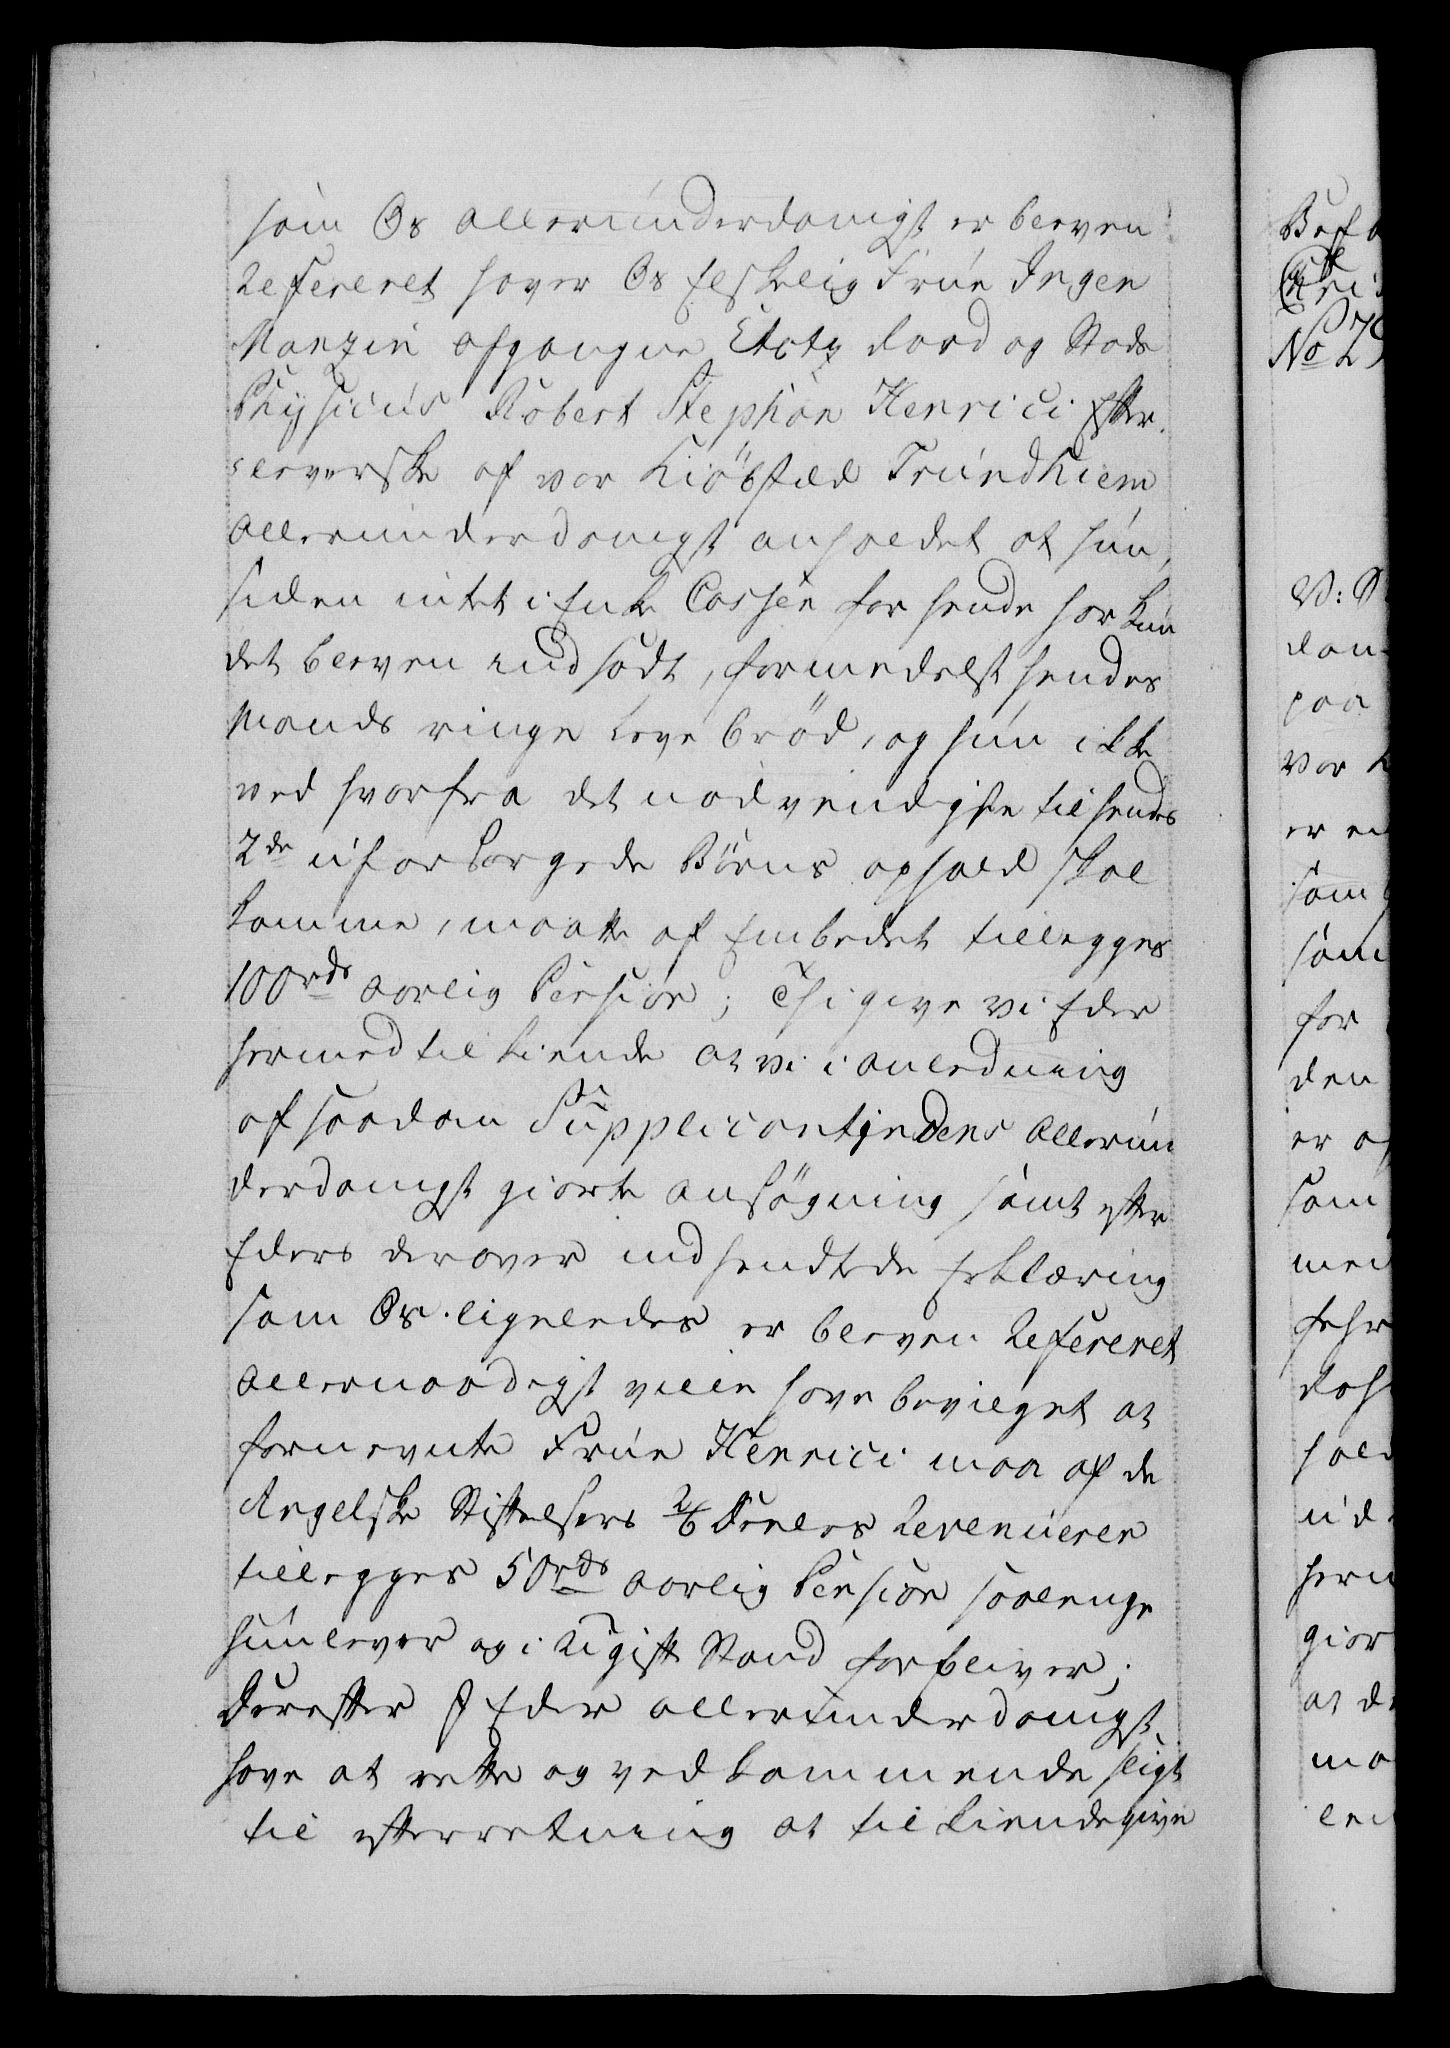 som Os allerunderdanigst er bleven
Refereret haver Os Elskelig Frue Inger
Manzin afgangne Etatz Raad og Stads
Physicus Robert Stephan Henrici Efter-
leverske af vor Kiöbstæd Trundhiem
allerunderdanigst anholdet at hun,
siden intet i Enke Cassen for hende har kun
det bleven indsadt, formedelst hendes
Mands ringe Leve bröd, og hun ikke
ved hvorfra det nødvendigste til hendes
2de uforsorgede Börns ophold skal
komme, maatte af Embedet tillegges
100rdr aarlig Pension; Thi give vi Eder
hermed til kiende at vi i anledning
af saadan Supplicantindens allerun
derdanigst giorte ansögning samt efter
Eders derover indsendtede Erklæring
som Os ligeledes er bleven Refereret
allernaadigst ville have bevilget at
fornevnte Frue Henrici maa af de
Angelske Stiftelsers 2/6 Deeles Revenüerer
tillegges 50rdr aarlig Pension saalenge
hun lever og i Ugift Stand forbliver;
Derefter I Eder allerunderdanigst
have at rette og vedkommende sligt
til efterretning at tilkiendegive
Bef
No 2
W: S
dan-
paa
vor k
er en
som
som
for
den
er af
som
men
fehr
dahl
hold
ud
herm
gior
at de
ma
len